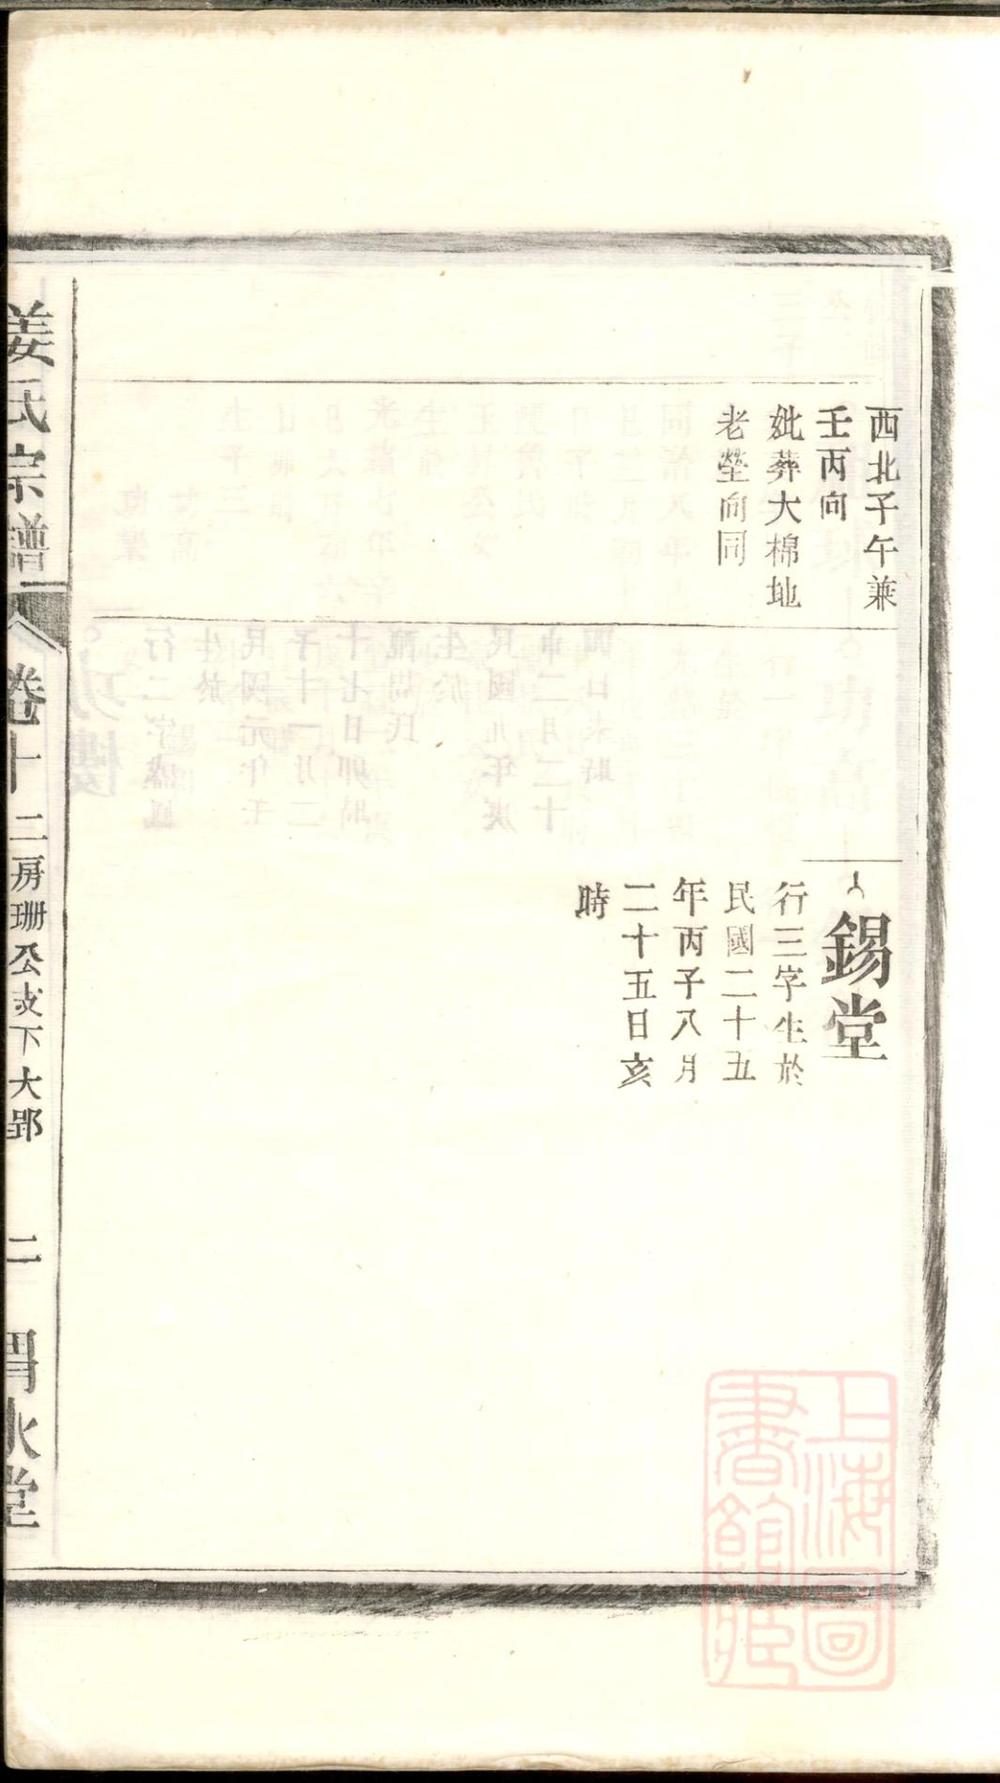 西北子午兼
壬丙向
妣葬大棉地
老塋向同
錫堂
行三字生於
民國二十五
年丙子八月
二十五日亥
時
姜氏宗譜
卷十
二房珊公支下大郢
二
渭水堂
上海圖
書館藏